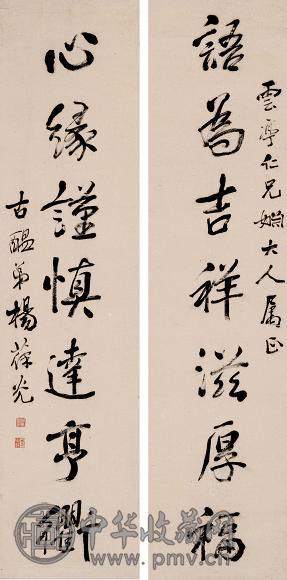 雲亭仁兄姻大人屬正
語為吉祥滋厚福
心緣謹慎達亨衢
古醞弟楊葆光
中华收藏网
www.pmv.cn